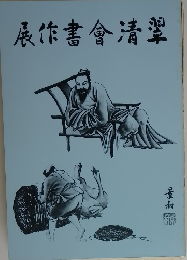 翠清會書作展
景